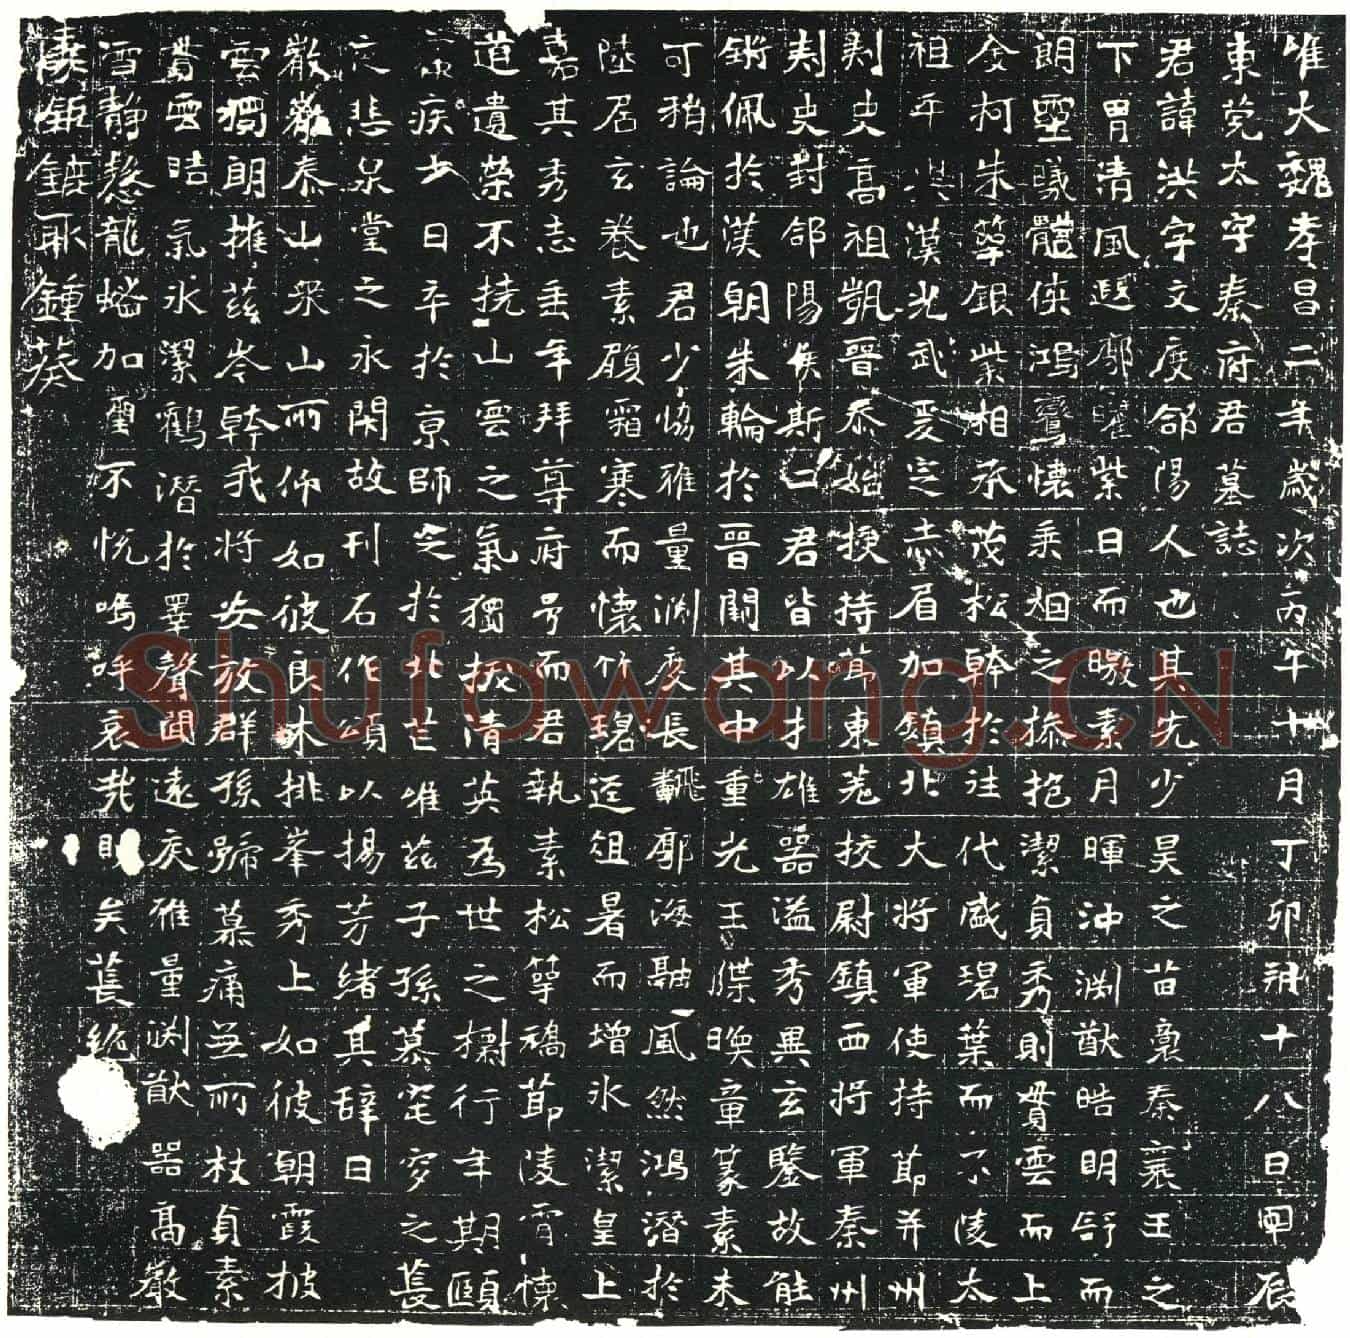 唯大魏孝昌二年歲次丙午十月丁卯朔十八日甲辰
東莞太守秦府君墓誌
君諱洪字文度郃陽人也其先少昊之苗裔秦襄王之
下胄清風遐鄺紫日而暾素月暉沖渊猷皓明舒而
朗聖曦體俠鴻鸞懷秉烜之摻抱潔貞秀則貫雲而上
金柯朱華銀紫相承茂松幹於往代咸碧葉而不陵太
祖平漢光武爰定赤眉加鎮北大將軍使持節并州
刺史高祖凱晉泰始授持茸東莞校尉鎮西將軍秦州
刺史封郃陽侯斯二君皆以才雄器溢秀異玄鑒故能
鏘佩於漢朝朱輪於晉闕其中重光王牒㬇章篆素未
可稍論也君少協雅量渊度長翻廓海融風然鴻潛於
陸居玄養素顧霜寒而懷竹珺逕徂暑而增冰潔皇上
嘉其秀志垂年拜尊府号而君執素松筆穚節陵霄懷
道遺榮不撓山雲之氣獨拔清英為世之㯍行年期頤
疾少日卒於京師定於北芒唯茲子孫慕窀穸之萇
之悲泉堂之永閑故刊石作頌以揚芳緒其辭曰
巖巖泰山眾山所仰如彼良木排峯秀上如彼朝霞披
雲獨朗擁茲岑幹我將安放群孫號慕痛无所杖貞素
雲晧氣冰潔鶴潛於睪聲聞遠庚雅量渊猷器高巖
雪靜懃龍蟠加璽不悦嗚呼哀哉 矣萇絶
Shufawang.CN